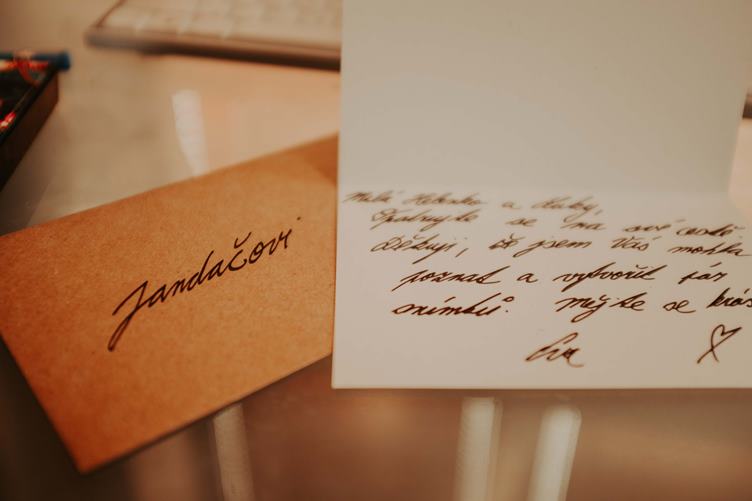 Jandačovi
Milá Helenko a Kuby,
Opatrujte se na své cestě.
Děkuji, že jsem Vás mohla
poznat a vytvořit pár
snímků. Mějte se krás
Eva